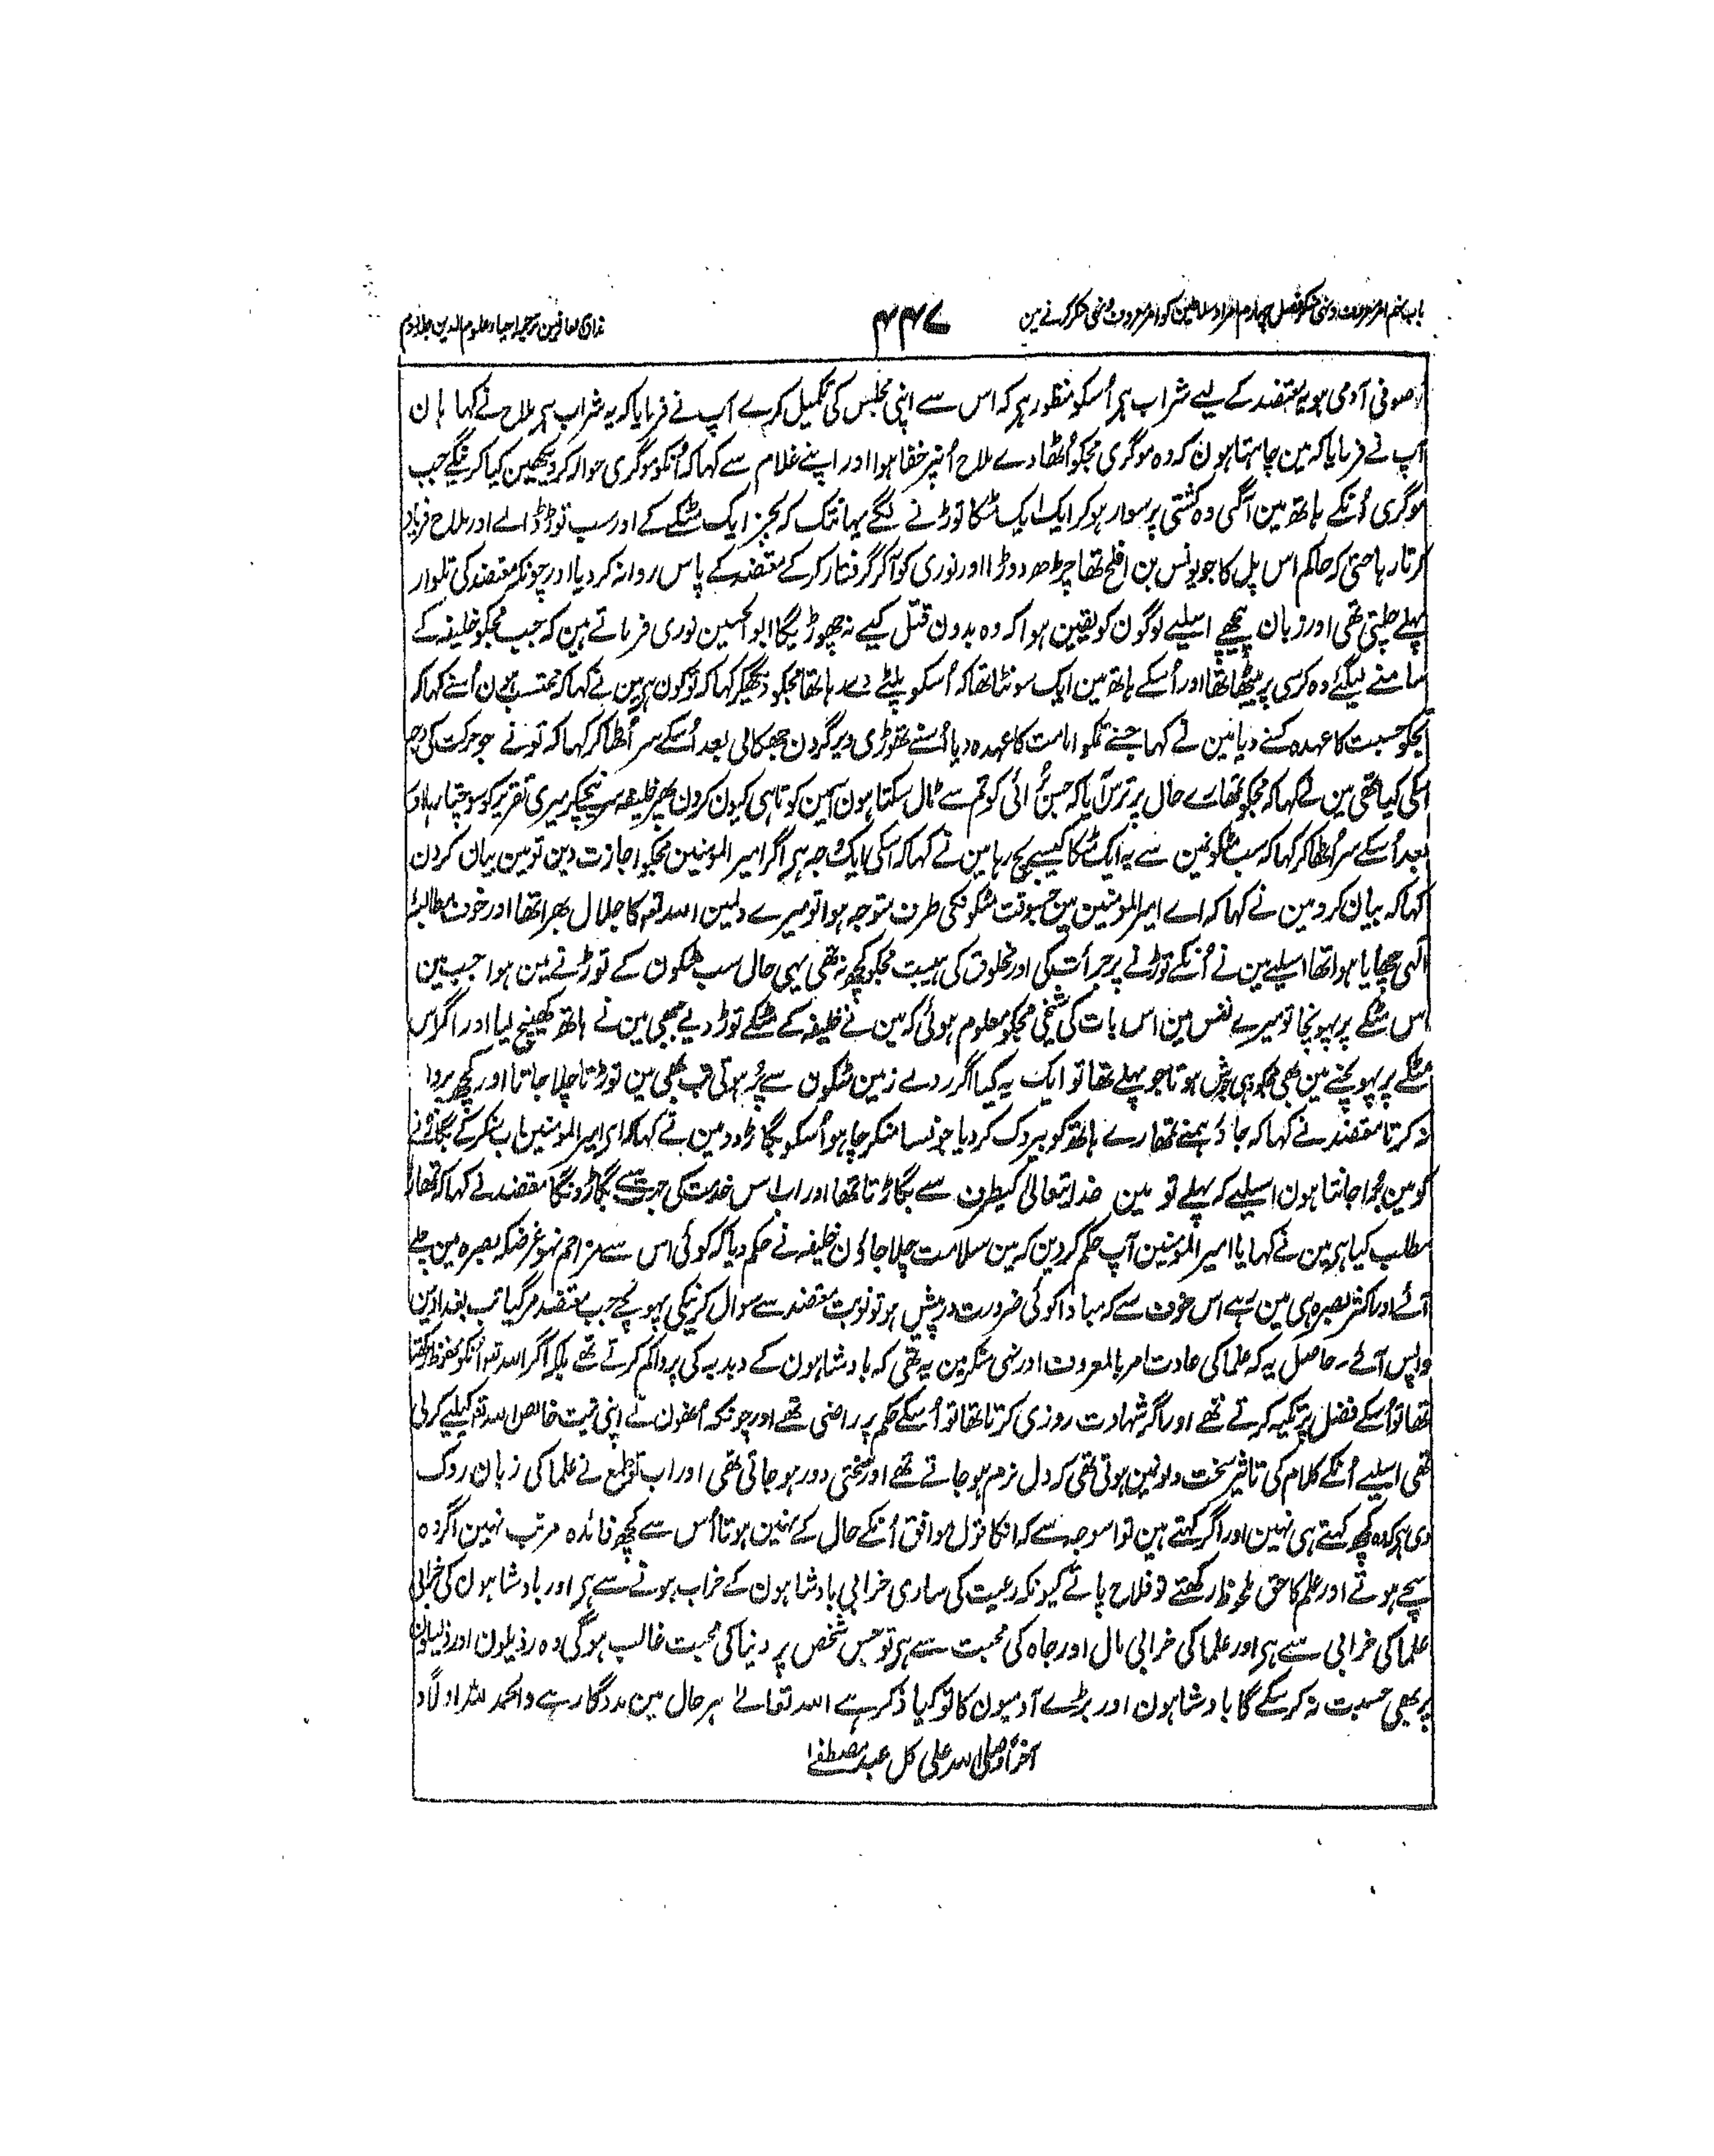 باب نہم امر معروف ونہی منکر فصل چہارم امرا وسلاطین کو امر معروف ونہی منکر کرنے مین
۴۴۷
مذاق العارفین ترجمہ احیاء علوم الدین جلد دوم
صوفی آدمی ہو یہ معتضد کے لیے شراب ہی اُسکو منظور ہی کہ اس سے اپنی مجلس کی تکمیل کرے آپ نے فرمایا کہ یہ شراب ہی ملاح نے کہا ہان
آپ نے فرمایا کہ مین چاہتا ہون کہ وہ موگری مجکو اُٹھا دے ملاح اُنپر خفا ہوا اور اپنے غلام سے کہا کہ اُنکو موگری حوالہ کر دیکھین کیا کرینگے جب
موگری اُنکے ہاتھ مین آگئی وہ کشتی پر سوار ہو کر ایک ایک مٹکا توڑنے لگے یہانتک کہ بجز ایک مٹکے کے اور سب توڑ ڈالے اور ملاح فریاد
کرتا رہا حتی کہ حاکم اس پل کا جو یونس بن افلح تھا چڑھ دوڑا اور نوری کو آ کر گرفتار کر کے معتضد کے پاس روانہ کر دیا اور چونکہ معتضد کی تلوار
پہلے چلتی تھی اور زبان پیچھے اسلیے لوگون کو یقین ہوا کہ وہ بدون قتل کیے نہ چھوڑیگا ابو الحسین نوری فرماتے ہین کہ جب مجکو خلیفہ کے
سامنے لیگئے وہ کرسی پر بیٹھا تھا اور اُسکے ہاتھ مین ایک سونٹا تھا کہ اُسکو پلٹے دے رہا تھا مجکو دیکھکر کہا کہ تو کون ہی مین نے کہا کہ محتسب ہون اُسنے کہا کہ
تجکو حسبت کا عہدہ کسنے دیا مین نے کہا جسنے تمکو امامت کا عہدہ دیا اُسنے تھوڑی دیر گردن جھکالی بعد اُسکے سر اُٹھا کر کہا کہ تو نے جو حرکت کی وجہ
اسکی کیا تھی مین نے کہا کہ مجکو تمھارے حال پر ترس آیا کہ جس بُرائی کو تم سے ٹال سکتا ہون اسمین کوتاہی کیون کرون پھر خلیفہ سر نیچے کر میری تقریر کو سوچتا رہا اور
بعد اُسکے سر اُٹھا کر کہا کہ سب مٹکونمین سے یہ ایک مٹکا کیسے بچ رہا مین نے کہا کہ اسکی ایک وجہ ہی اگر امیر المومنین مجکو اجازت دین تو مین بیان کرون
کہا کہ بیان کرو مین نے کہا کہ اے امیر المومنین مین جسوقت مٹکونکی طرف متوجہ ہوا تو میرے دلمین اللہ تعہ کا جلال بھرا تھا اور خوف مطالبۂ
الٰہی چھایا ہوا تھا اسلیے مین نے اُنکے توڑنے پر جرأت کی اور مخلوق کی ہیبت مجکو کچھ نہ تھی یہی حال سب مٹکون کے توڑنے مین ہوا جب مین
اس مٹکے پر پہونچا تو میرے نفس مین اس بات کی شیخی مجکو معلوم ہوئی کہ مین نے خلیفہ کے مٹکے توڑ دیے جبھی مین نے ہاتھ کھینچ لیا اور اگر اس
مٹکے پر پہونچنے مین بھی مجکو وہی جوش ہوتا جو پہلے تھا تو ایک یہ کیا اگر روے زمین مٹکون سے پُر ہوتی تب بھی مین توڑتا چلا جاتا اور کچھ پروا
نہ کرتا معتضد نے کہا کہ جاؤ ہمنے تمھارے ہاتھ کو بیروک کر دیا جونسا منکر چاہو اُسکو بگاڑ دو مین نے کہا کہ ای امیر المومنین اب منکر کے بگاڑنے
کو مین بُرا جانتا ہون اسلیے کہ پہلے تو مین خدایتعالیٰ کیطرف سے بگاڑتا تھا اور اب اس خدمت کی جہت سے بگاڑونگا معتضد نے کہا کہ تمھارا
مطلب کیا ہی مین نے کہا یا امیر المومنین آپ حکم کر دین کہ مین سلامت چلا جاؤن خلیفہ نے حکم دیا کہ کوئی اس سے مزاحم نہو غرضکہ بصرہ مین چلے
آئے اور اکثر بصرہ ہی مین رہے اس خوف سے کہ مبادا کوئی ضرورت درپیش ہو تو نوبت معتضد سے سوال کرنیکی پہونچے جب معتضد مر گیا تب بغداد مین
واپس آئے۔ حاصل یہ کہ علما کی عادت امر بالمعروف اور نہی منکر مین یہ تھی کہ بادشاہون کے دبدبہ کی پروا کم کرتے تھے بلکہ اگر اللہ تعہ اُنکو محفوظ رکھتا
تھا تو اُسکے فضل پر تکیہ کرتے تھے اور اگر شہادت روزی کرتا تھا تو اُسکے حکم پر راضی تھے اور چونکہ اُنھون نے اپنی نیت خالص اللہ تعہ کیلیے کر لی
تھی اسلیے اُنکے کلام کی تاثیر سخت دلونمین ہوتی تھی کہ دل نرم ہو جاتے تھے اور سختی دور ہو جاتی تھی اور اب تو طمع نے علما کی زبان روک
دی ہی کہ وہ کچھ کہتے ہی نہین اور اگر کہتے ہین تو اسوجہ سے کہ انکا قول موافق اُنکے حال کے نہین ہوتا اُس سے کچھ فائدہ مرتب نہین اگر وہ
سچے ہوتے اور علم کا حق ملحوظ رکھتے تو فلاح پاتے کیونکہ رعیت کی ساری خرابی بادشاہون کے خراب ہونے سے ہی اور بادشاہون کی خرابی
علما کی خرابی سے ہی اور علما کی خرابی مال اور جاہ کی محبت سے ہی تو جس شخص پر دنیا کی محبت غالب ہوگی وہ رذیلون اور ذلیلون
پر بھی حسبت نہ کر سکے گا بادشاہون اور بڑے آدمیون کا تو کیا ذکر ہے اللہ تعالےٰ ہر حال مین مددگار ہے والحمد للہ اولاً و
آخراً وصلی اللہ علی کل عبد مصطفے